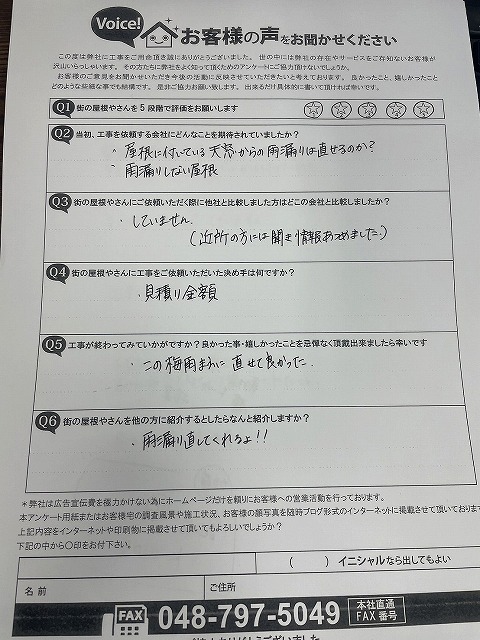 Voice! お客様の声をお聞かせください
この度は弊社に工事をご用命頂き誠にありがとうございました。世の中には弊社の存在やサービスをご存知ないお客様が
沢山いらっしゃいます。その方たちに弊社をよく知って頂くためのアンケートにご協力頂けないでしょうか。
お客様のご意見をお聞かせいただき今後の活動に反映させていただきたいと考えております。良かったこと、嬉しかったこと
どのような些細な事でも結構です。是非ご協力お願い致します。出来るだけ具体的に書いて頂ければ幸いです。
Q1 街の屋根やさんを5段階で評価をお願いします
Q2 当初、工事を依頼する会社にどんなことを期待されていましたか?
・屋根に付いている天窓からの雨漏りは直せるのか?
・雨漏りしない屋根
Q3 街の屋根やさんにご依頼いただく際に他社と比較しました方はどこの会社と比較しましたか?
・していません。
(近所の方には聞き情報あつめました。)
Q4 街の屋根やさんに工事をご依頼いただいた決め手は何ですか?
・見積り金額
Q5 工事が終わってみていかがですか?良かった事・嬉しかったことを忌憚なく頂戴出来ましたら幸いです
・この梅雨まえに直せて良かった。
Q6 街の屋根やさんを他の方に紹介するとしたらなんと紹介しますか?
・雨漏り直してくれるよ!!
*弊社は広告宣伝費を極力かけない為にホームページだけを頼りにお客様への営業活動を行っております。
本アンケート用紙またはお客様宅の調査風景や施工状況、お客様の顔写真を随時ブログ形式のインターネットに掲載させて頂いており
上記内容をインターネットや印刷物に掲載させて頂いてもよろしいでしょうか?
下記の中から〇印をお付下さい。
( ) イニシャルなら出してもよい
名前 ご住所
FAX 048-797-5049 本社直通 FAX番号